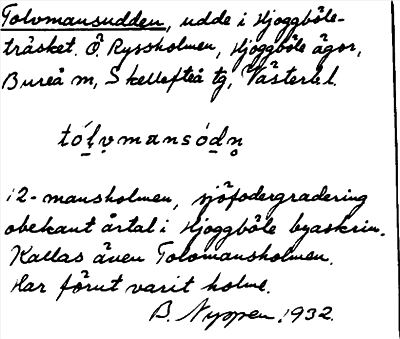 Tolvmansudden, udde i Hjoggböle-
träsket. Ö. Ryssholmen, Hjoggböle ägor,
Bureå sn, Skellefteå tg, Västerb. l.
tó̱ḷv̥mansód̲n̥
12-mansholmen, sjöfodergradering
obekant årtal i Hjoggböle byaskrin.
Kallas även Tolvmansholmen.
Har förut varit holme.
B. Nyppen. 1932.